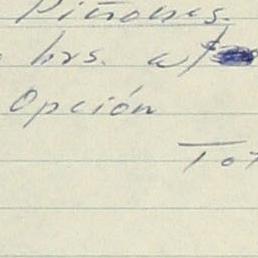 Piñones.
hrs. w/
Opción
Tot